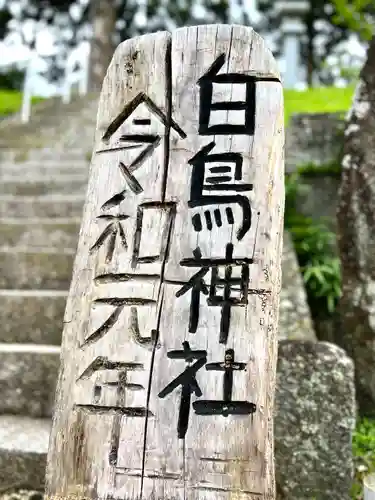 白鳥神社
令和元年